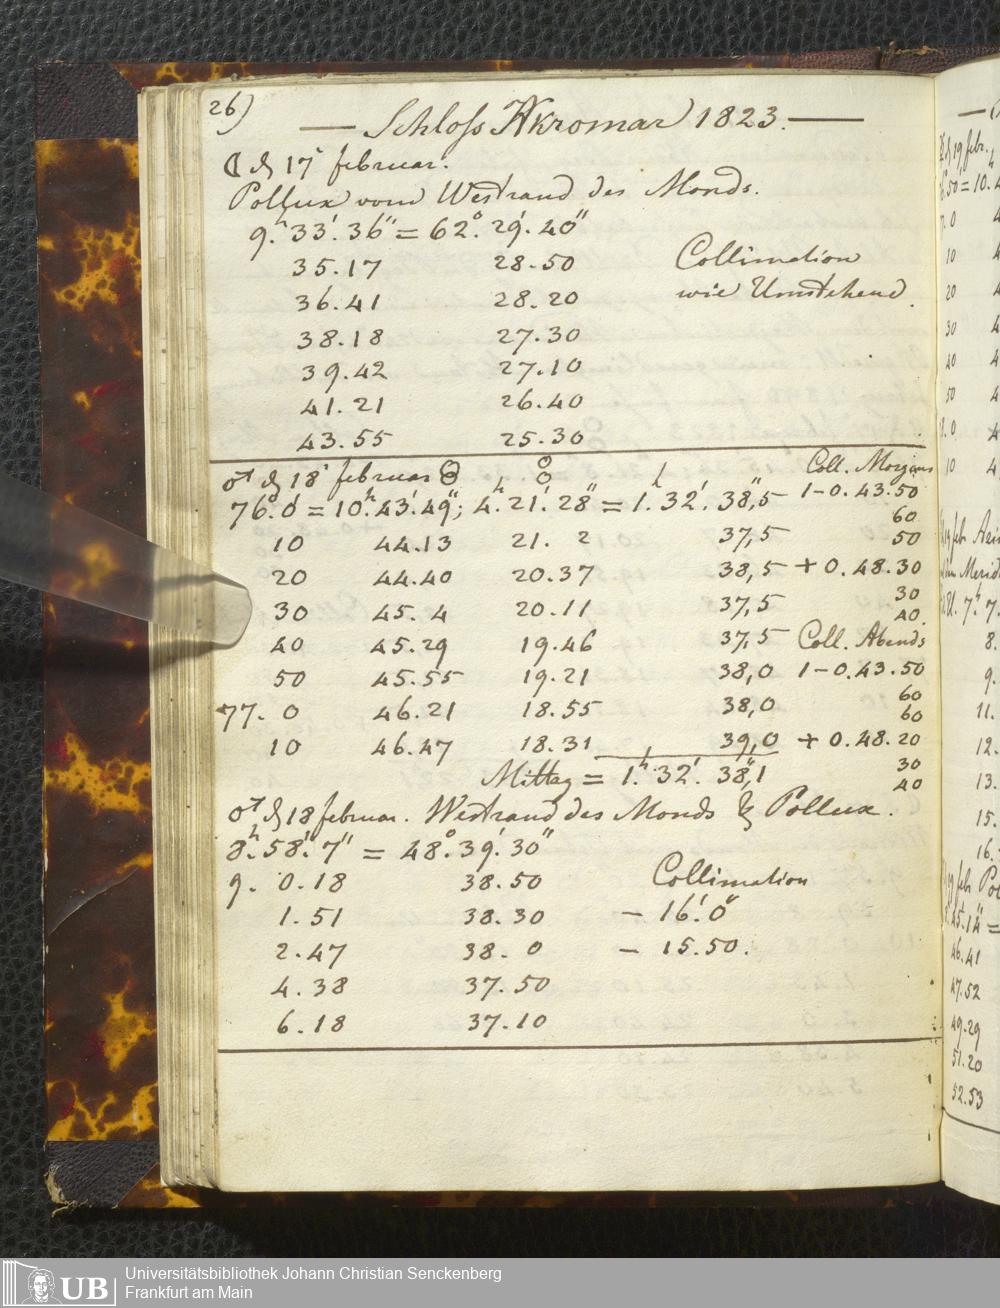 26)
— Schloss Akromar 1823. —
☾ d 17' februar.
Pollux vom Westrand des Monds.
9.h 33.' 36" = 62.° 29.' 40"
35.17 28.50 Collimation
36.41 28.20 wie Umstehend.
38.18 27.30
39.42 27.10
41.21 26.40
43.55 25.30
♂ d 18' februar Coll. Morgens
76.° 0' = 10.h 43.' 49"; 4.h 21.' 28" = 1.h 32.' 38",5 1-0.43.50
60
10 44.13 21. 2 37,5 50
20 44.40 20.37 38,5 + 0.48.30
30 45. 4 20.11 37,5 30
40
40 45.29 19.46 37,5 Coll. Abends
50 45.55 19.21 38,0 1-0.43.50
77. 0 46.21 18.55 38,0 60
60
10 46.47 18.31 39,0 + 0.48.20
Mittag = 1.h 32.' 38",1 30
40
♂ d 18 februar. Westrand des Monds & Pollux.
8.h 58.' 7" = 48.° 39.' 30"
9. 0.18 38.50 Collimation
1.51 38.30 - 16.' 0"
2.47 38. 0 - 15.50.
4.38 37.50
6.18 37.10
19 febr.
50 = 10.
0
10
20
30
40
50
0
10
febr
Merid
7.h 7.
8.
9.
11.
12.
13.
15.
16.
febr
45.14 =
46.41
47.52
49.29
51.20
52.53
UB
Universitätsbibliothek Johann Christian Senckenberg
Frankfurt am Main